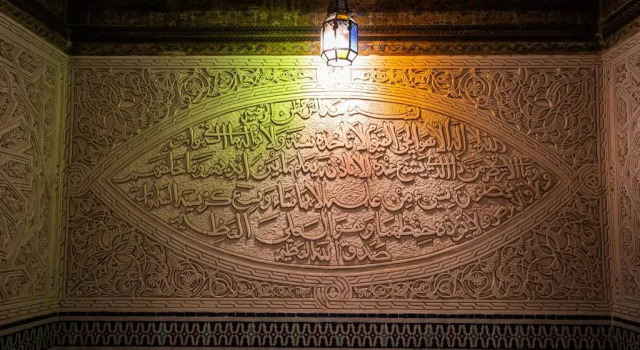 بسم الله الرحمن الرحيم
الله لا إله إلا هو الحي القيوم لا تأخذه سنة ولا نوم له ما في السموات
وما في الأرض من ذا الذي يشفع عنده إلا بإذنه يعلم ما بين أيديهم وما خلفهم
ولا يحيطون بشيء من علمه إلا بما شاء وسع كرسيه السموات
والأرض ولا يؤوده حفظهما وهو العلي العظيم
صدق الله العظيم